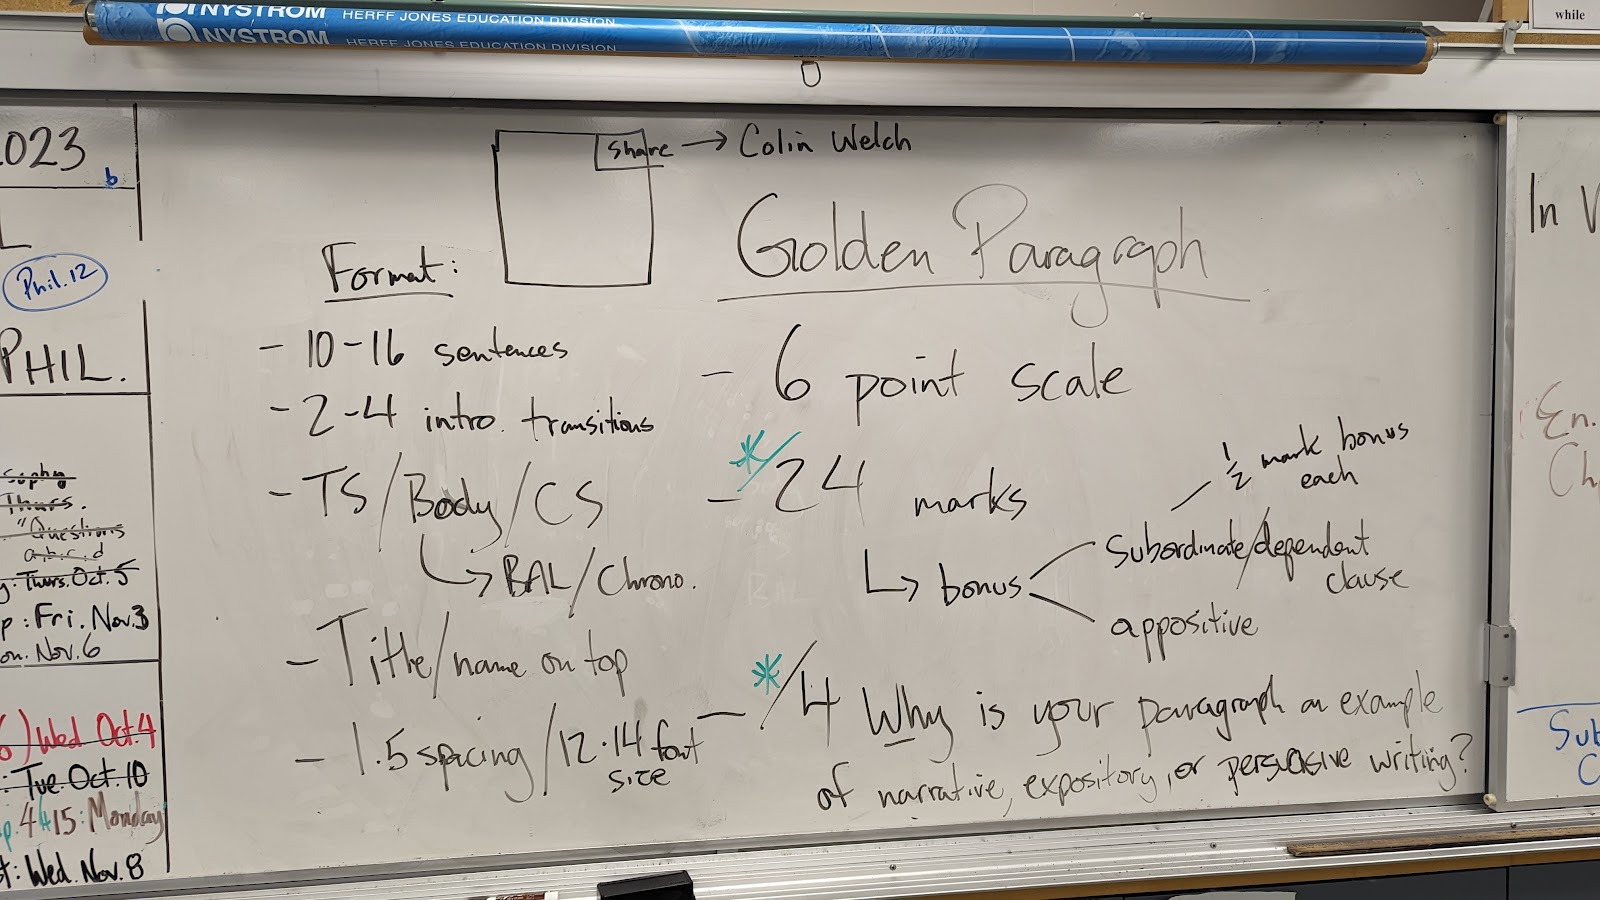 NYSTROM HERFF JONES EDUCATION DIVISION
NYSTROM HERFF JONES EDUCATION DIVISION
while
2023
b
L
Phil.12
PHIL.
Thurs.
"Questions
a.b.c.d
Thurs. Oct. 5
p: Fri. Nov. 3
on. Nov. 6
6) Wed. Oct. 4
: Tue. Oct. 10
p. 4 #15: Monday
t: Wed. Nov. 8
share → Colin Welch
Format:
- 10-16 sentences
- 2-4 intro. transitions
- TS/Body/CS
↳ BAL/Chrono.
- Title/name on top
- 1.5 spacing/12-14 font
size
Golden Paragraph
- 6 point scale
- */24 marks
↳ bonus
1/2 mark bonus
each
Subordinate/dependent
clause
appositive
- */4 Why is your paragraph an example
of narrative, expository, or persuasive writing?
In V
En.
Ch
Sub
C